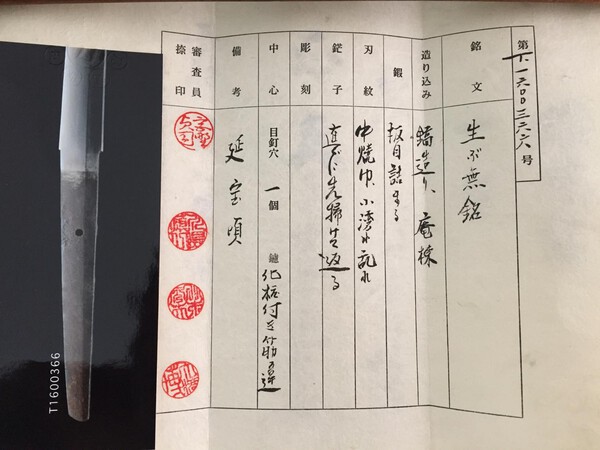 第T.一六〇〇三六六号
銘文 生ぶ無銘
造り込み 鎬造り、庵棟
鍜 板目詰まる
刃紋 中焼巾、小湾れ乱れ
鋩子 直ぐに先掃けて返る
彫刻
中心 目釘穴 一個 鑢 化粧付き筋違
備考 延宝頃
審査員
捺印
T1600366